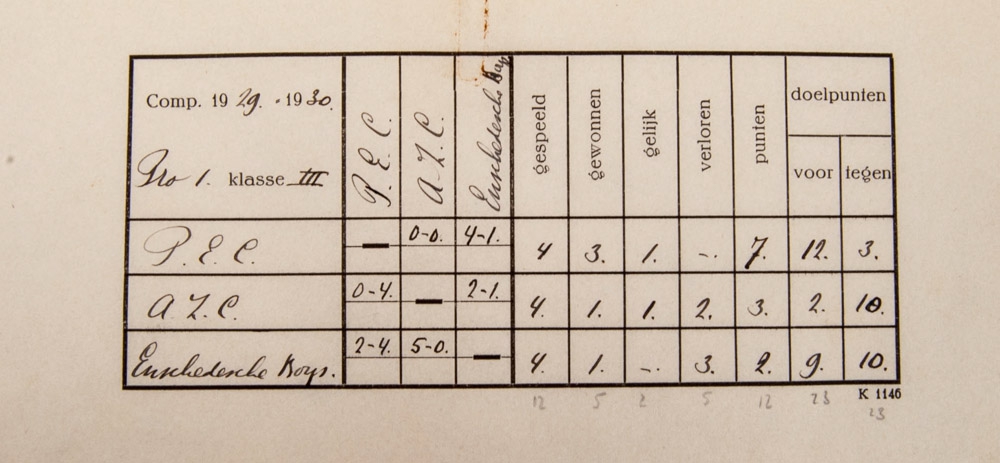 Comp. 1929. - 1930.
Pro 1. klasse III
P. E. C.
A. Z. C.
Enschedesche Boys
gespeeld
gewonnen
gelijk
verloren
punten
doelpunten
voor tegen
P. E. C. — 0-0. 4-1. 4 3. 1. -. 7. 12. 3.
A. Z. C. 0-4. — 2-1. 4. 1. 1. 2. 3. 2. 10.
Enschedesche Boys. 2-4. 5-0. — 4. 1. -. 3. 2. 9. 10.
K 1146
12 5 2 5 12 23 23